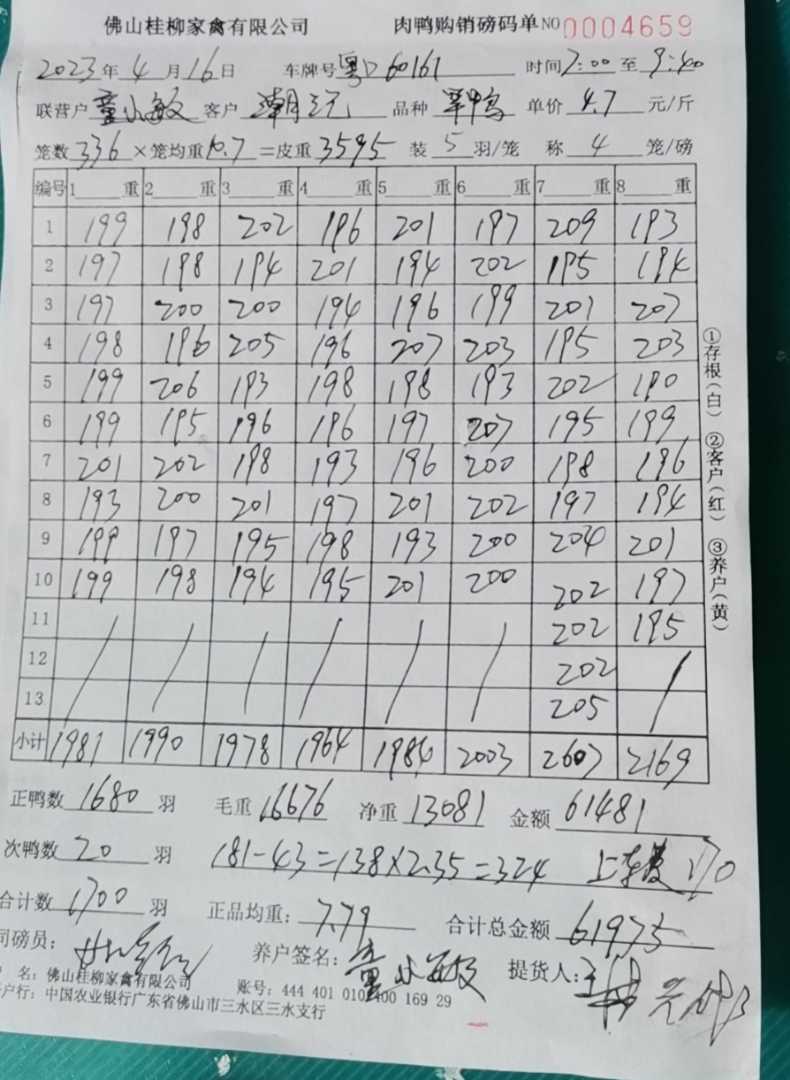 佛山桂柳家禽有限公司 肉鸭购销磅码单 NO 0004659
2023年4月16日 车牌号粤D60161 时间2:00至9:40
联营户童小敏 客户潮记 品种 单价4.7元/斤
笼数336×笼均重10.7=皮重3595 装5羽/笼 称4笼/磅
编号 1 重 2 重 3 重 4 重 5 重 6 重 7 重 8 重
1 199 198 202 196 201 197 209 193
2 197 198 194 201 194 202 195 194
3 197 200 200 194 196 199 201 207
4 198 196 205 196 207 203 195 203
5 199 206 193 198 198 193 202 190
6 199 195 196 196 197 207 195 199
7 201 202 198 193 196 200 198 196
8 193 200 201 197 201 202 197 194
9 199 197 195 198 193 200 204 201
10 199 198 194 195 201 200 202 197
11 / / / / / / 202 195
12 202 /
13 205
小计 1981 1990 1978 1964 1984 2003 2607 2169
正鸭数1680羽 毛重16676 净重13081 金额61481
次鸭数20羽 181-43=138×2.35=324 上车费170
合计数1700羽 正品均重:7.79 合计总金额61975
司磅员: 养户签名:童小敏 提货人:
名:佛山桂柳家禽有限公司 账号:444 401 010 400 169 29
户行:中国农业银行广东省佛山市三水区三水支行
①存根(白) ②客户(红) ③养户(黄)